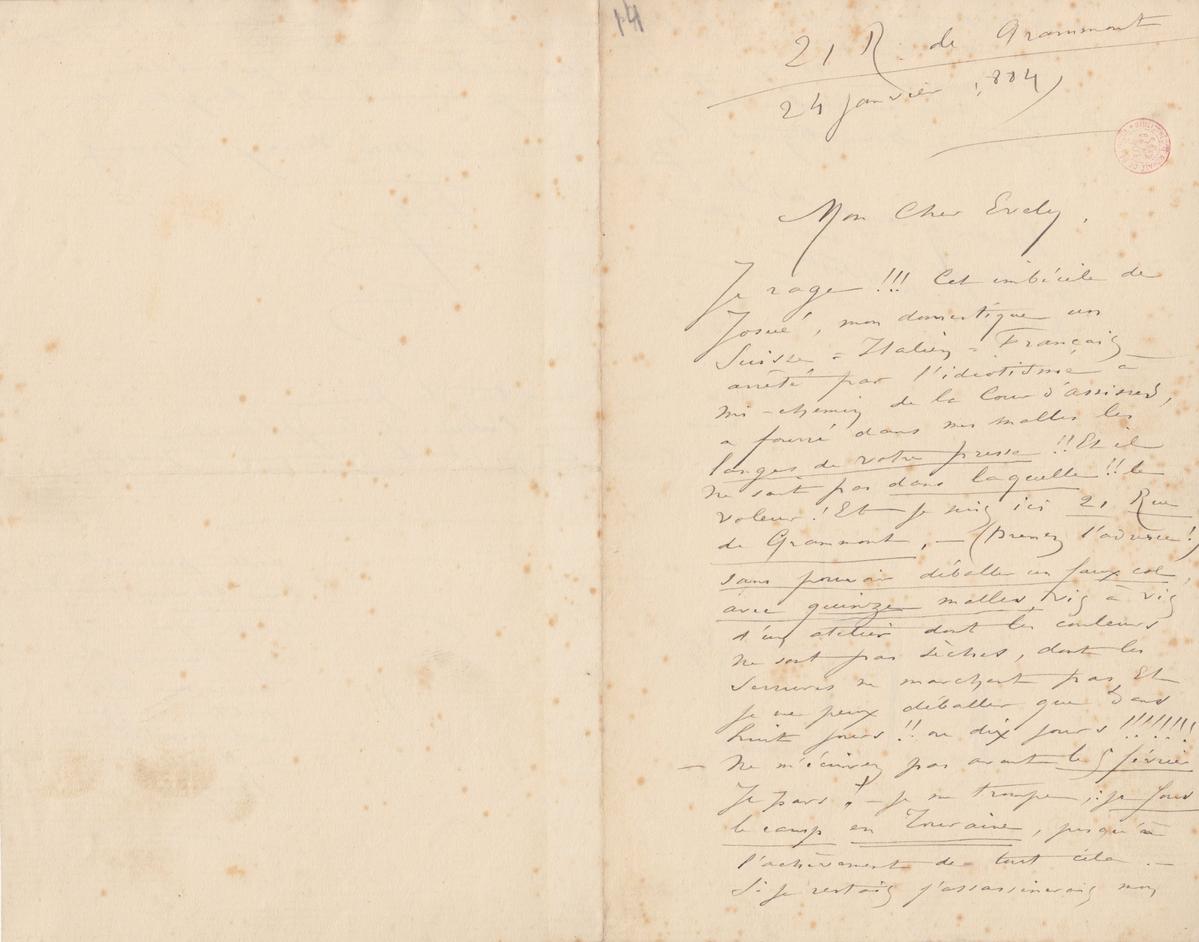 14
21 R. de Grammont
24 janvier 1884)
Mon Cher Evely,
Je rage !!! Cet imbécile de
Josué, mon domestique un
Suisse = Italien = Français
arrêté par l'idiotisme à
mi-chemin de la Cour d'assises,
a fourré dans mes malles les
langes de votre presse !! Et il
ne sait pas dans laquelle !! le
voleur ! Et je suis ici 21 Rue
de Grammont, — (Prenez l'adresse !)
sans pouvoir déballer un faux col,
avec quinze malles, vis à vis
d'un atelier dont les couleurs
ne sont pas sèches, dont les
serrures ne marchent pas Et
je ne peux déballer que dans
huit jours !! ou dix jours !!!!!!!
— Ne m'écrivez pas avant le 5 février
Je pars ! — je me trompe, : je fous
le camp en Touraine, jusqu'à
l'achèvement de tout cela. —
Si je restais j'assassinerais mon